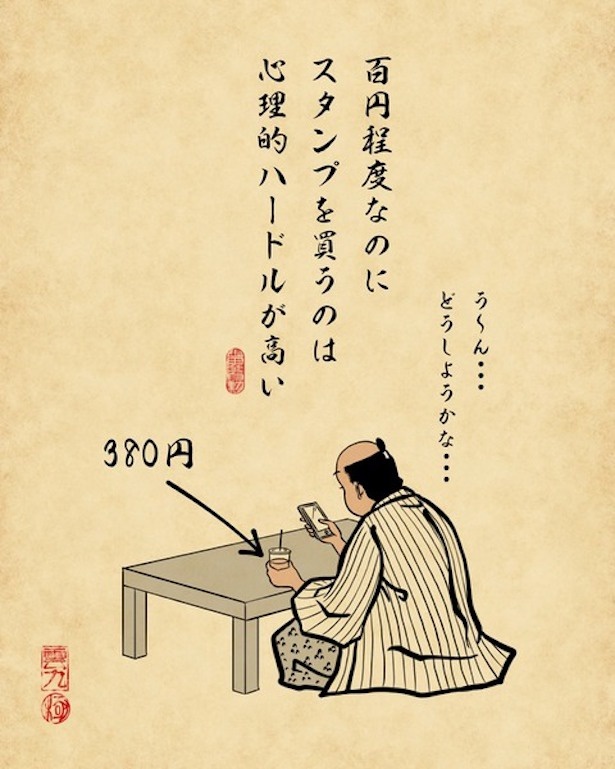 百円程度なのに
スタンプを買うのは
心理的ハードルが高い
う〜ん・・・
どうしようかな・・・
380円